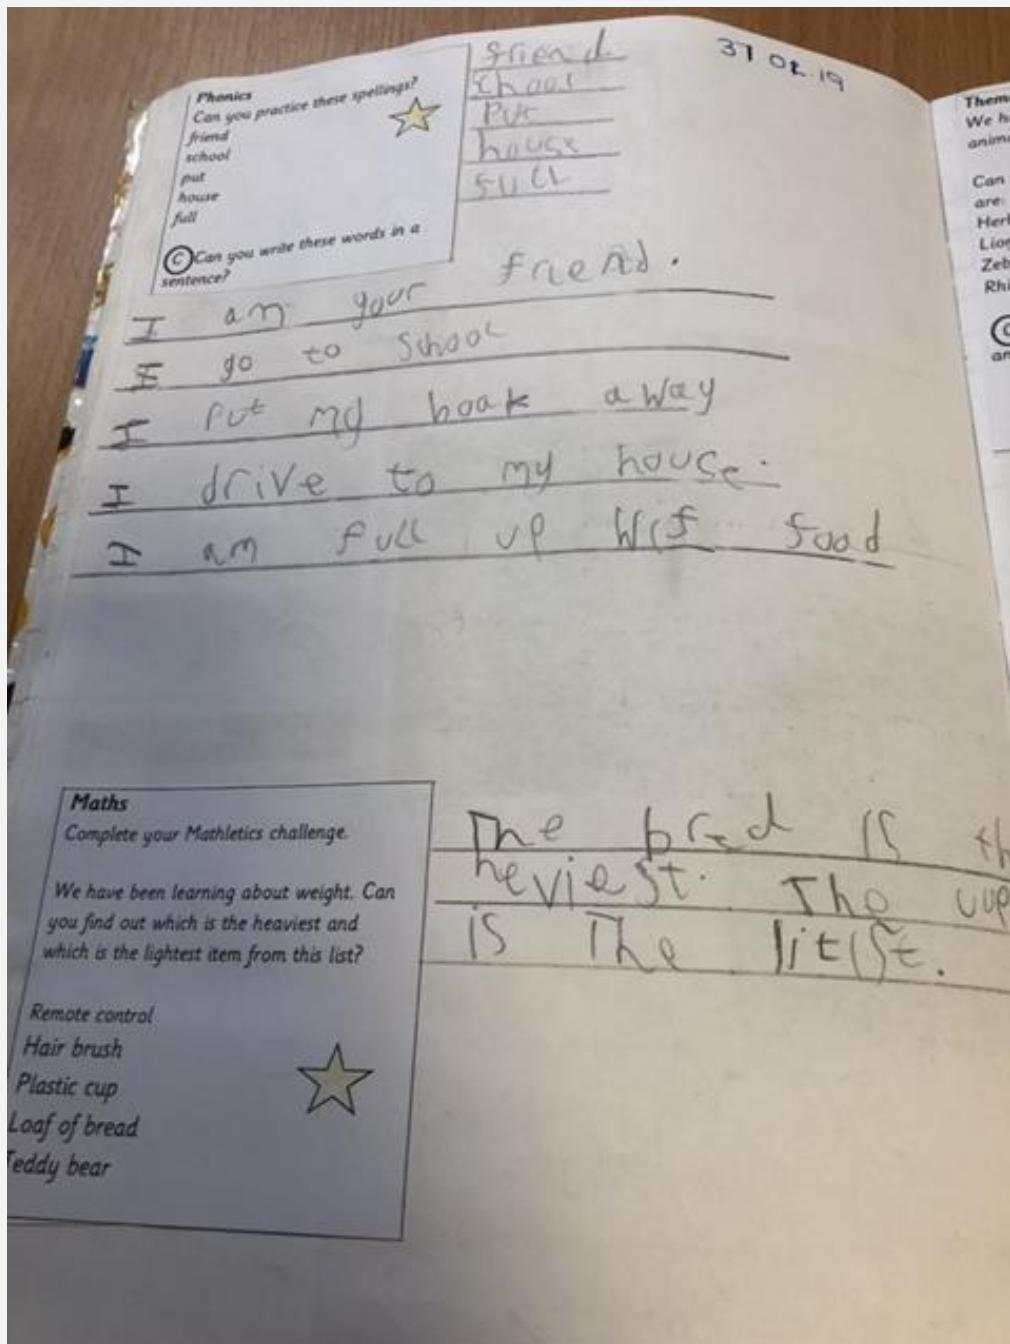 Phonics
Can you practice these spellings?
friend
school
put
house
full
C Can you write these words in a
sentence?
friend
School
Put
house
full
I am your friend.
I go to School
I Put my book away
I drive to my house.
I am full up Wif food
Maths
Complete your Mathletics challenge.
We have been learning about weight. Can
you find out which is the heaviest and
which is the lightest item from this list?
Remote control
Hair brush
Plastic cup
Loaf of bread
Teddy bear
The bred is th
heviest. The cup
is The litist.
Them
We h
anima
Can
are:
Her
Lion
Zeb
Rhi
C
an